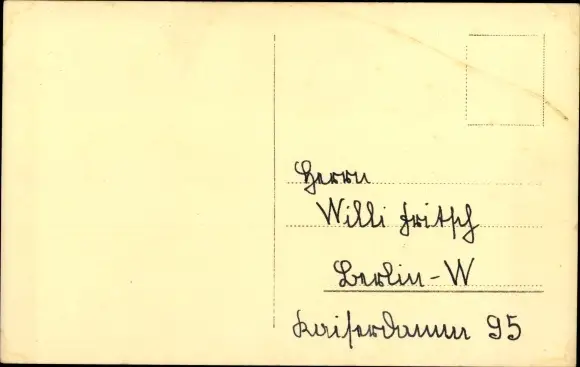 Herrn
Willi Fritsch
Berlin-W
Kaiserdamm 95